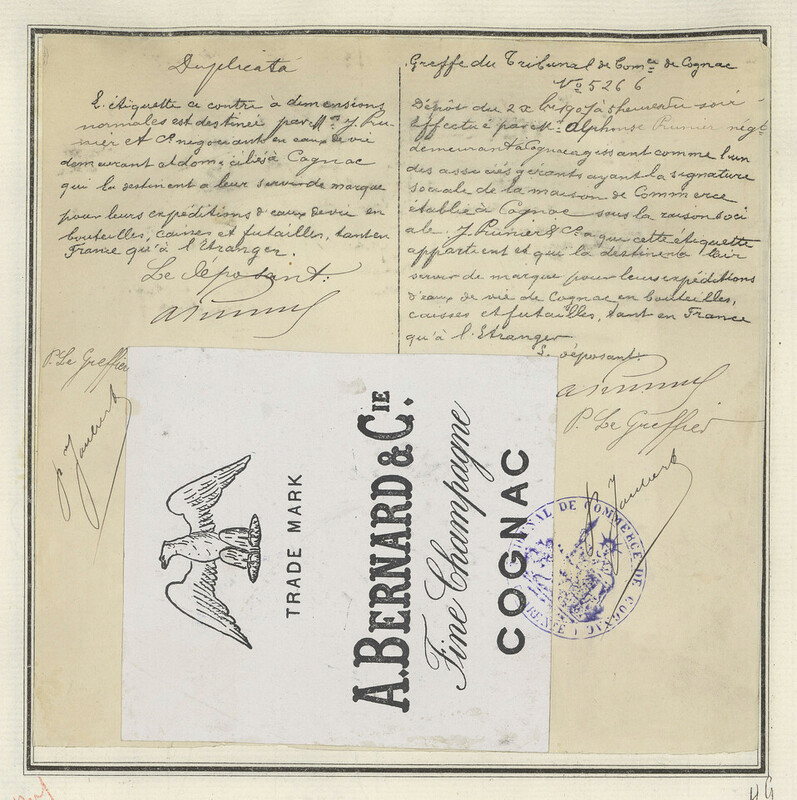 Duplicata
L'étiquette ci contre à dimensions
normales est destinée par Mm. J. Pru-
nier et Cie négociant en eaux de vie
demeurant et domiciliés à Cognac
qui la destinent a leur servir de marque
pour leurs expéditions d'eaux de vie en
bouteilles, caisses et futailles, tant en
France qu'à l'Etranger.
Le déposant:
P. Le Greffier
Greffe du Tribunal de Comce de Cognac
No 5266
Dépôt du 2 Xbre 1907 à 5 heures du soir
Effectué par Mr. Alphonse Prunier négt
demeurant à Cognac agissant comme l'un
des associés gérants ayant la signature
sociale de la maison de Commerce
établie à Cognac sous la raison soci
ale J. Prunier & Cie à qui cette étiquette
appartient et qui la destine à leur
servir de marque pour leurs expéditions
d'eaux de vie de Cognac en bouteilles,
caisses et futailles, tant en France
qu'à l'Etranger
Le déposant:
P. Le Greffier
TRADE MARK
A. BERNARD & CIE.
Fine Champagne
COGNAC
TRIBUNAL DE COMMERCE DE COGNAC